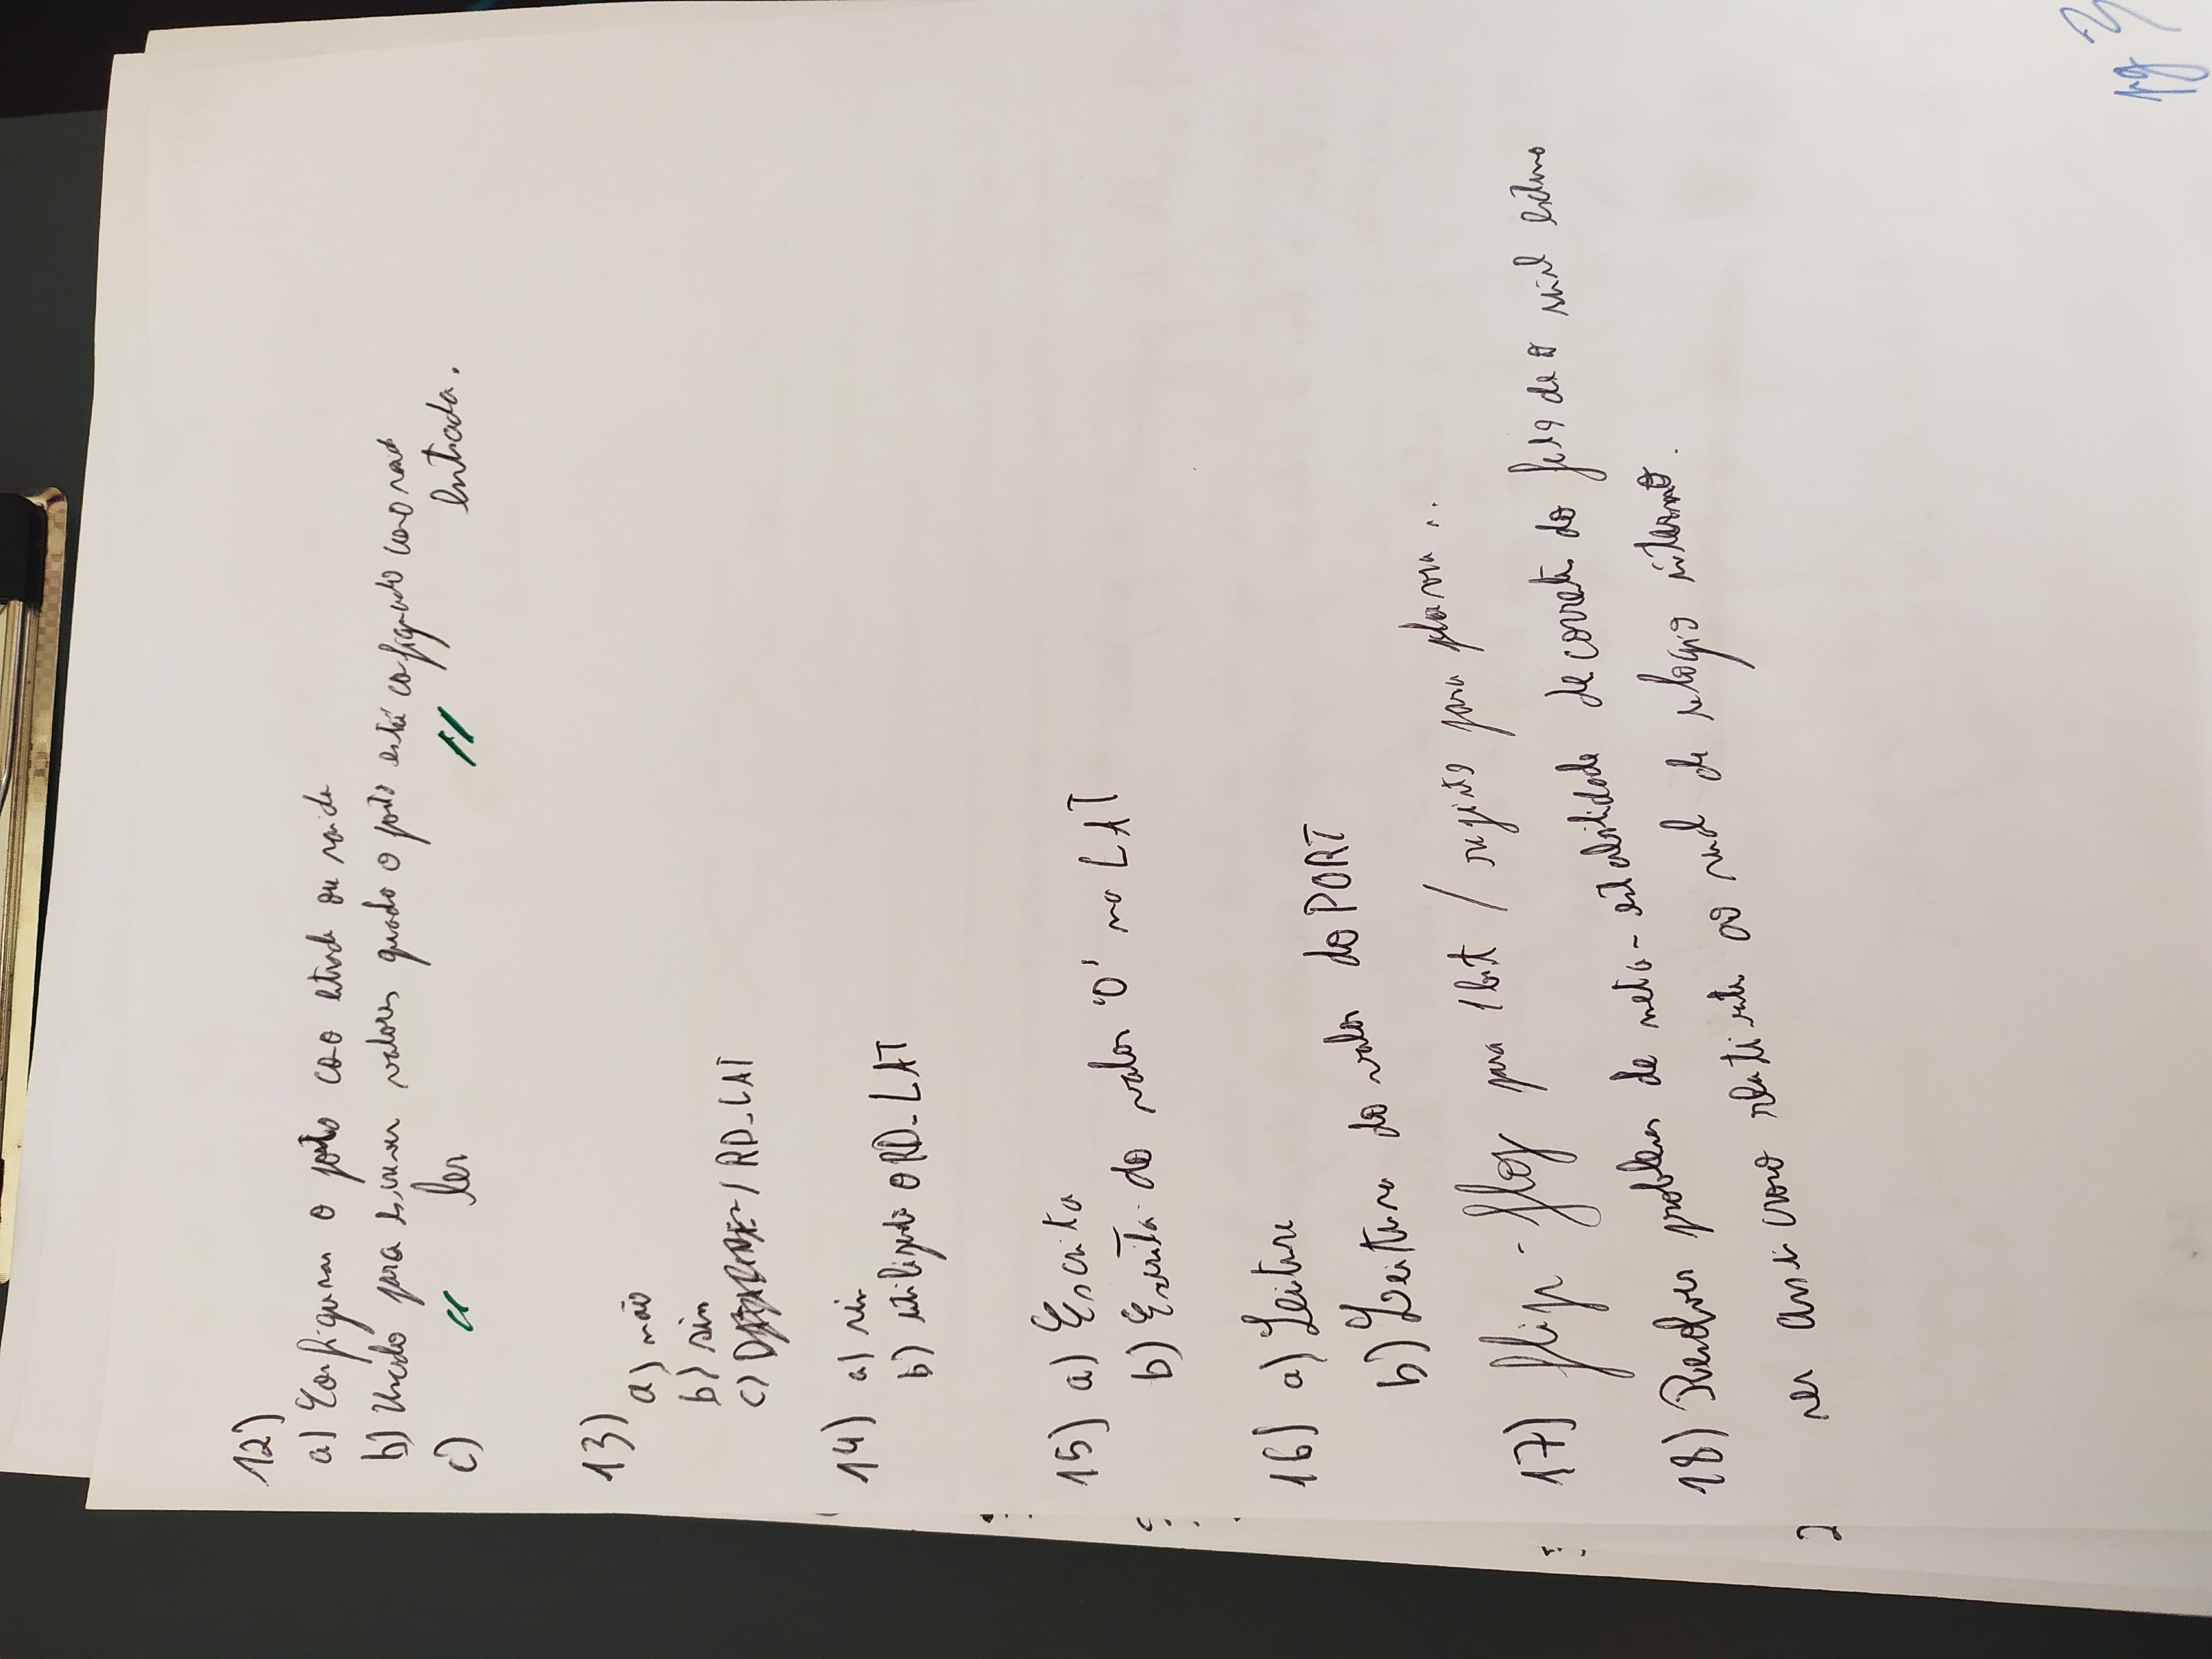 12)
a) Configurar o porto como entrada ou saida
b) Usado para escrever valores quado o porto está configurado como saida
c) " ler " entrada.
13)
a) não
b) sim
c) / RD_LAT
14) a) sim
b) utilizando o RD_LAT
15) a) Escrita
b) Escrita do valor '0' no LAT
16) a) Leitura
b) Leitura do valor do PORT
17) flip-flop para 1 bit / registo para palavra ..
18) Resolver problemas de meta-estabilidade decorrentes do facto de o sinal externo
ser assincrono relativamente ao sinal de relogio interno.
2
pg 3